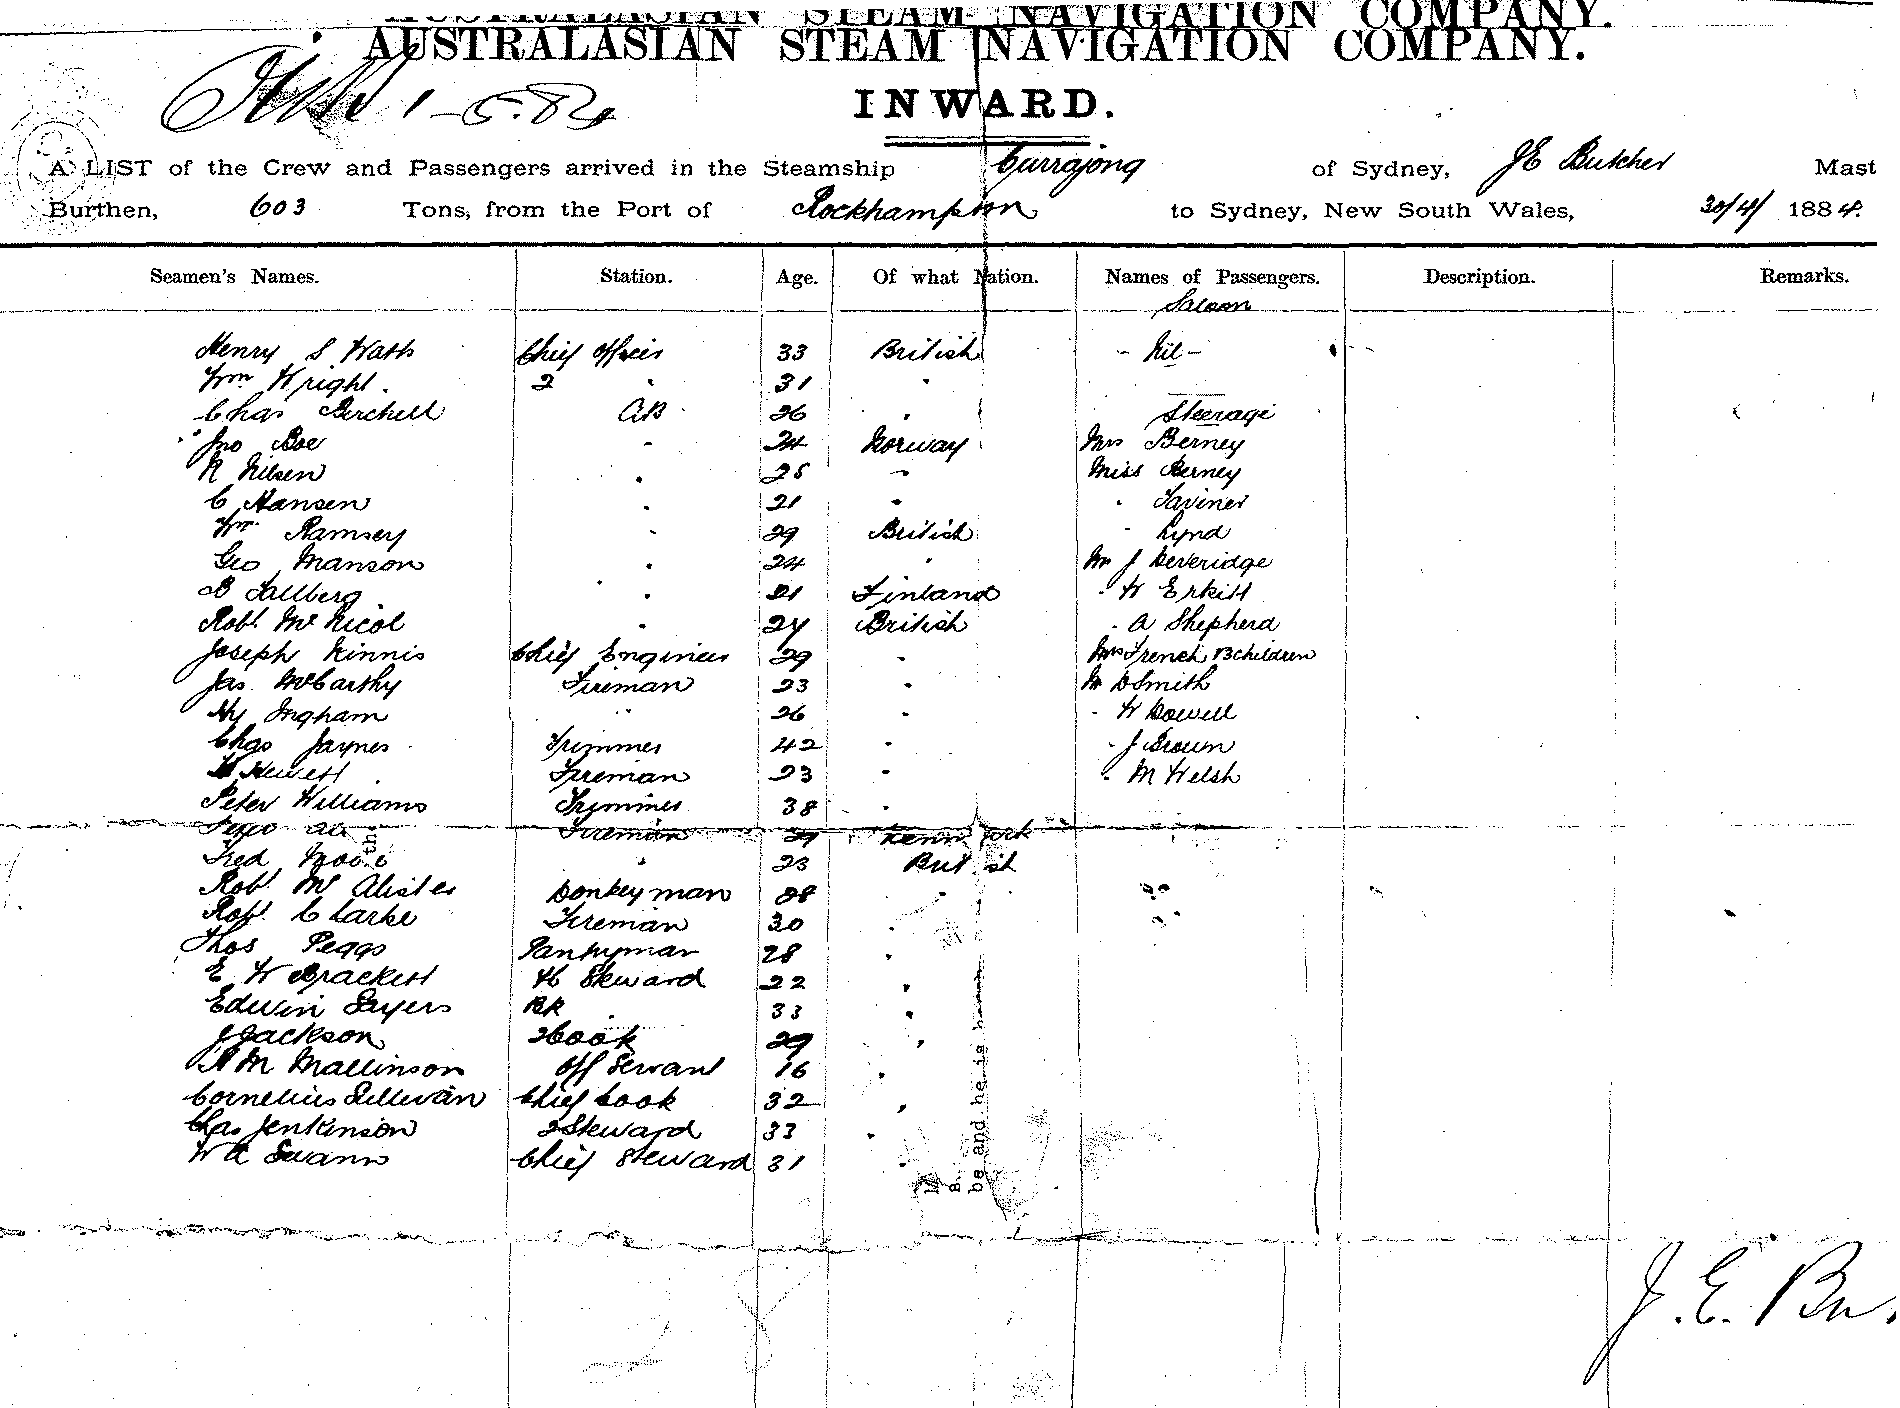 AUSTRALASIAN STEAM NAVIGATION COMPANY.
AUSTRALASIAN STEAM NAVIGATION COMPANY.
1-5.84
INWARD.
A LIST of the Crew and Passengers arrived in the Steamship Currajong of Sydney, J E Butcher Mast
Burthen, 603 Tons, from the Port of Rockhampton to Sydney, New South Wales, 30/4/ 1884.
Seamen's Names. Station. Age. Of what Nation. Names of Passengers. Description. Remarks.
Saloon
Henry S Watts Chief Officer 33 British - Nil -
Wm Wright. 2 " 31 "
Chas Birchell AB 26 " Steerage
Jno Boe " 24 Norway Mrs Berney
N Nilsen " 25 " Miss Berney
C Hansen " 21 " " Taviner
Wm Ramsey " 29 British " Lynd
Geo Manson " 24 " Mr J Beveridge
B Tallberg " 21 Finland " W Erkitt
Robt McNicol " 24 British " A Shepherd
Joseph Kinnis Chief Engineer 29 " Mrs French & 3 children
Jas. McCarthy Fireman 23 " Mr D Smith
Hy Ingham " 26 " " W Dowell
Chas Jaynes Trimmer 42 " " J Brown
W Hewett Fireman 23 " " M Welsh
Peter Williams Trimmer 38 "
Fireman 29 Denmark
Fred " 23 British
Robt McAlister Donkeyman 28 "
Robt Clarke Fireman 30 "
Thos Peggs Pantryman 28 "
E W Brackett Steward 22 "
Edwin Sayers BK 33 "
J Jackson 2 Cook 29 "
A M Mallinson Off Servant 16 "
Cornelius Sullivan Chief Cook 32 "
Chas Jenkinson 2 Steward 33 "
W A Swann Chief Steward 31 "
be and he is
J. E. Bu